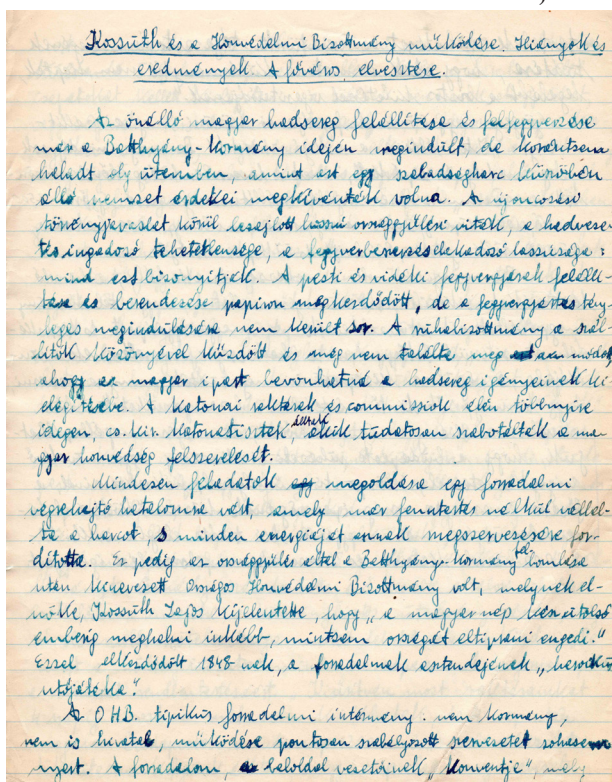 Kossuth és a Honvédelmi Bizottmány működése. Hiányok és
eredmények. A főváros elvesztése.
Az önálló magyar hadsereg felállítása és felfegyverzése
már a Batthyány-kormány idején megindult, de korántsem
haladt oly ütemben, amint azt egy szabadságharc küszöbén
álló nemzet érdekei megkívánták volna. Az újoncozási
törvényjavaslat körül lezajlott hosszú országgyűlési viták, a hadveze-
tés ingadozó tehetetlensége, a fegyverbeszerzés elakadozó lassúsága:
mind ezt bizonyítják. A pesti és vidéki fegyvergyárak felállí-
tása és berendezése papiron megkezdődött, de a fegyvergyártás tény-
leges megindulására nem került sor. A ruhabizottmány a szál-
lítók közönyével küzdött és még nem találta meg azt a módot,
ahogy az magyar ipart bevonhatná a hadsereg igényeinek ki
elégítésébe. A katonai raktárak és commissiók élén többnyire
idegen, cs. kir. katonatisztek állottak, akik tudatosan szabotálták a ma-
gyar honvédség felszerelését.
Mindezen feladatok megoldása egy forradalmi
végrehajtó hatalomra várt, amely már fenntartás nélkül vállal-
ta a harcot, s minden energiáját ennek megszervezésére for-
dította. Ez pedig az országgyűlés által a Batthyány-kormány felbomlása
után kinevezett Országos Honvédelmi Bizottmány volt, melynek el-
nöke, Kossuth Lajos kijelentette, hogy „a magyar nép kész utolsó
emberig meghalni inkább, mintsem országát eltiporni engedi."
Ezzel elkezdődött 1848-nak, a forradalmak esztendejének „heroikus
utójátéka."
Az O.H.B. tipikus forradalmi intézmény. nem kormány,
nem is hivatal, működése pontosan szabályozott szervezetet sohasem
nyert. A forradalom, a baloldal vezetőinek „Konventje", mely